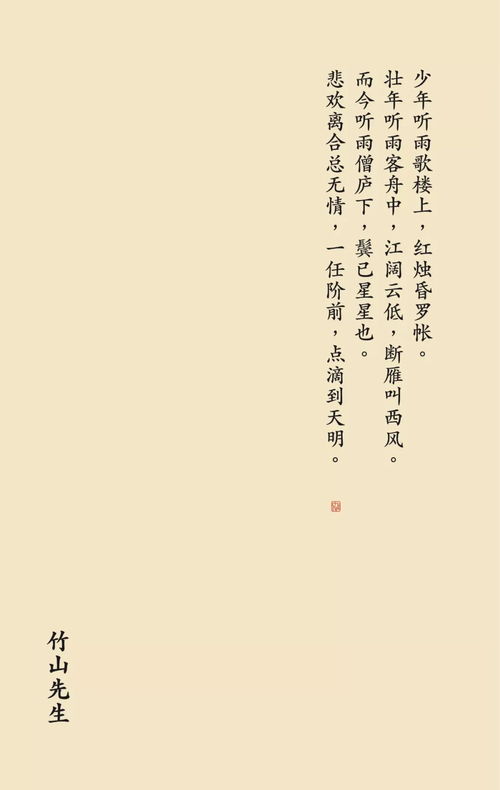 少年听雨歌楼上，红烛昏罗帐。
壮年听雨客舟中，江阔云低，断雁叫西风。
而今听雨僧庐下，鬓已星星也。
悲欢离合总无情，一任阶前，点滴到天明。
竹山先生